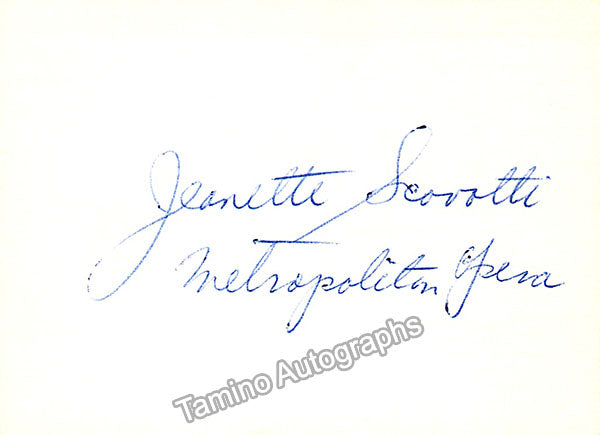 Jeanette Scovotti
Metropolitan Opera
Tamino Autographs